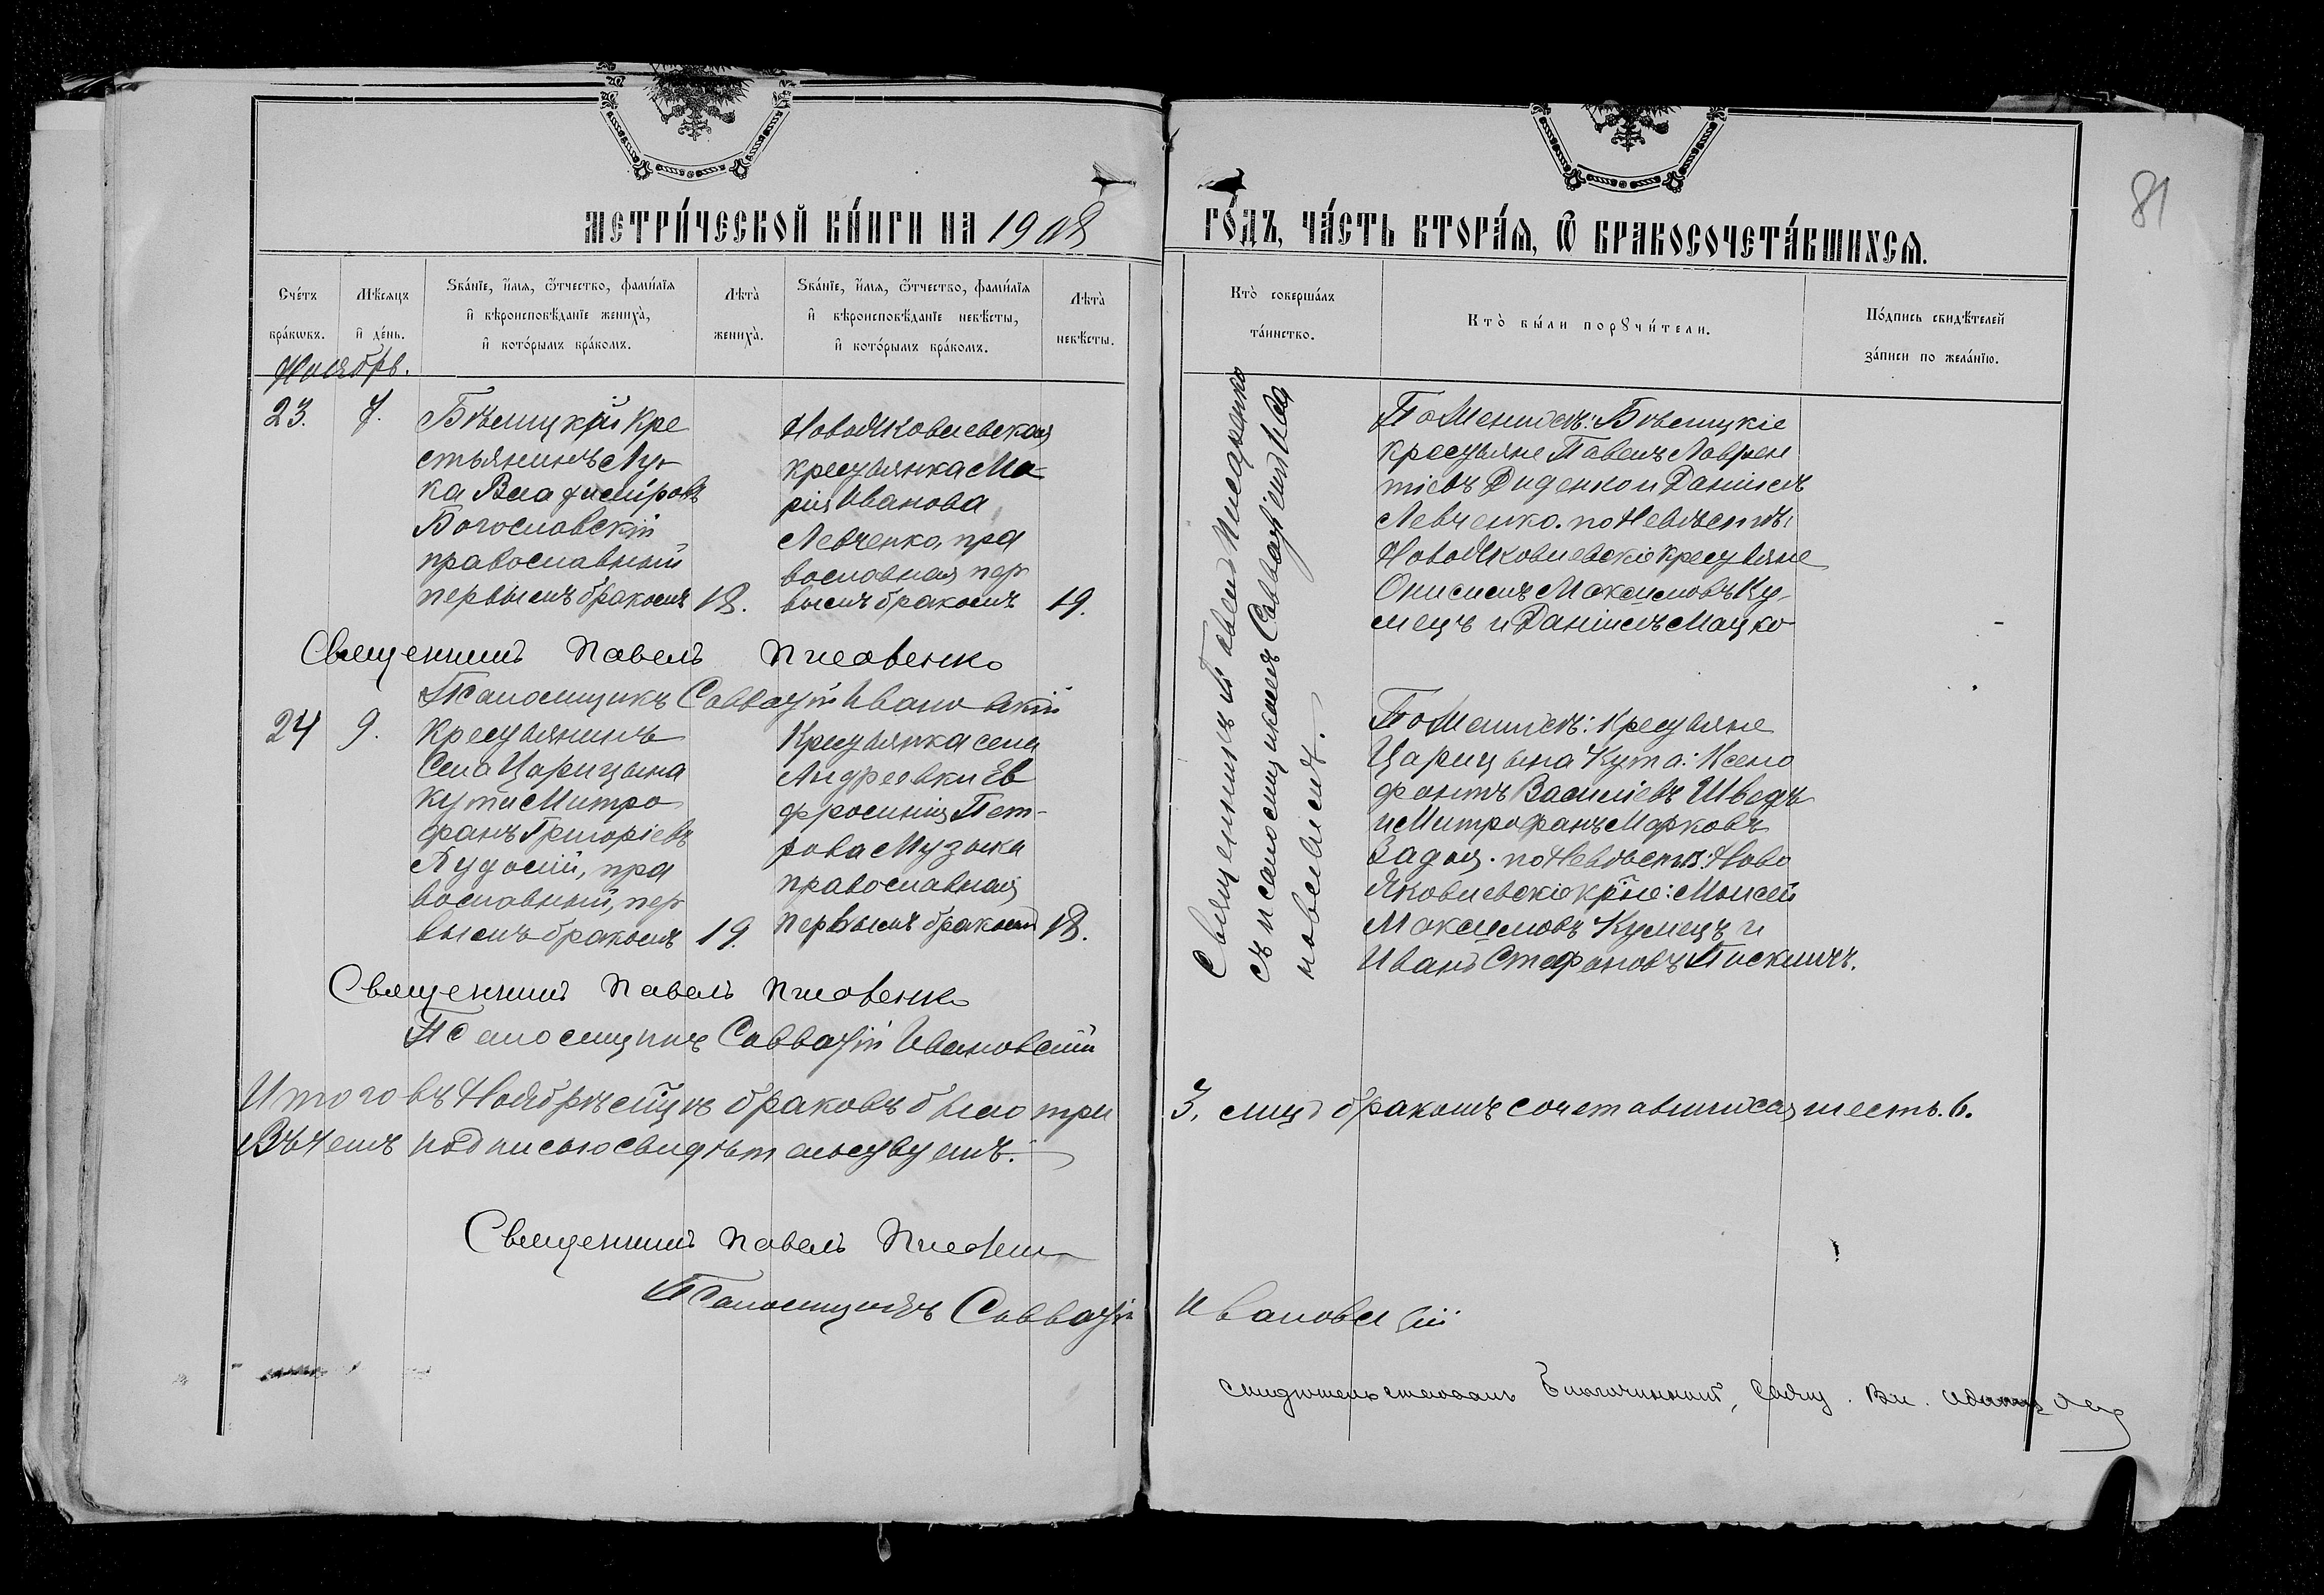 81
МЕТРИ́ЧЕСКОЙ КНИ́ГИ НА 1908
ГО́ДЪ, ЧА́СТЬ ВТОРА́Я, Ѡ БРАКОСОЧЕТА́ВШИХСЯ.
Сче́тъ бра́кωвъ.
Мѣ́сяцъ и де́нь.
Ѕва́нїе, и́мя, ѻ́тчество, фами́лїя
и вѣроисповѣ́данїе жениха̀,
и кото́рымъ бра́комъ.
Лѣта̀ жениха̀.
Ѕва́нїе, и́мя, ѻ́тчество, фами́лїя
и вѣроисповѣ́данїе невѣ́сты,
и кото́рымъ бра́комъ.
Лѣта̀ невѣ́сты.
Кто̀ соверша́лъ
та́инство.
Кто̀ бы́ли порꙋчи́тели.
По́дпись свидѣ́телей
за́писи по жела́нїю.
Ноябрь.
23. 7.
Бѣлицкій кре
стьянинъ Лу-
ка Владиміровъ
Богославскій
православный
первымъ бракомъ 18.
НовоЯковлевская
крестьянка Ма-
рія Иванова
Левченко, пра
вославная пер
вымъ бракомъ 19.
Священникъ Павелъ
Псаломщикъ Савватій Ивановскій
По Женихѣ: Бѣлицкіе
крестьяне Павелъ Лаврен
тіевъ Диденко и Даніилъ
Левченко. по Невѣстѣ:
НовоЯковлевскіе крестьяне
Онисимъ Максимовъ Ку-
мецъ и Даніилъ Мацко
Священникъ Павелъ
съ псаломщикомъ Савватіемъ Ива
новскимъ.
24 9.
Крестьянинъ
Села Царицына
Кута Митро
фанъ Григоріевъ
пра
вославный, пер
вымъ бракомъ 19.
Крестьянка села
Андреевки Ев
фросинія Пет-
рова Музыка
православная
первымъ бракомъ 18.
Священникъ Павелъ
Псаломщикъ Савватій Ивановскій
По Женихѣ: Крестьяне
Царицына Кута: Ксено
фонтъ Василіевъ Шведъ
и Митрофанъ Марковъ
по Невѣстѣ: Ново
Яковлевскіе кр̃не: Моисей
Максимовъ Кумецъ и
Иванъ Стефановъ
Итого въ Ноябрѣ мц̃ѣ браковъ было три
3. лицъ бракомъ сочетавшихся шесть. 6.
Въ чемъ подписью свидѣтельствуемъ.
Священникъ Павелъ
Псаломщикъ Савватій Ивановскій
свидѣтельствовалъ Благочинный, Свящ. Вл.